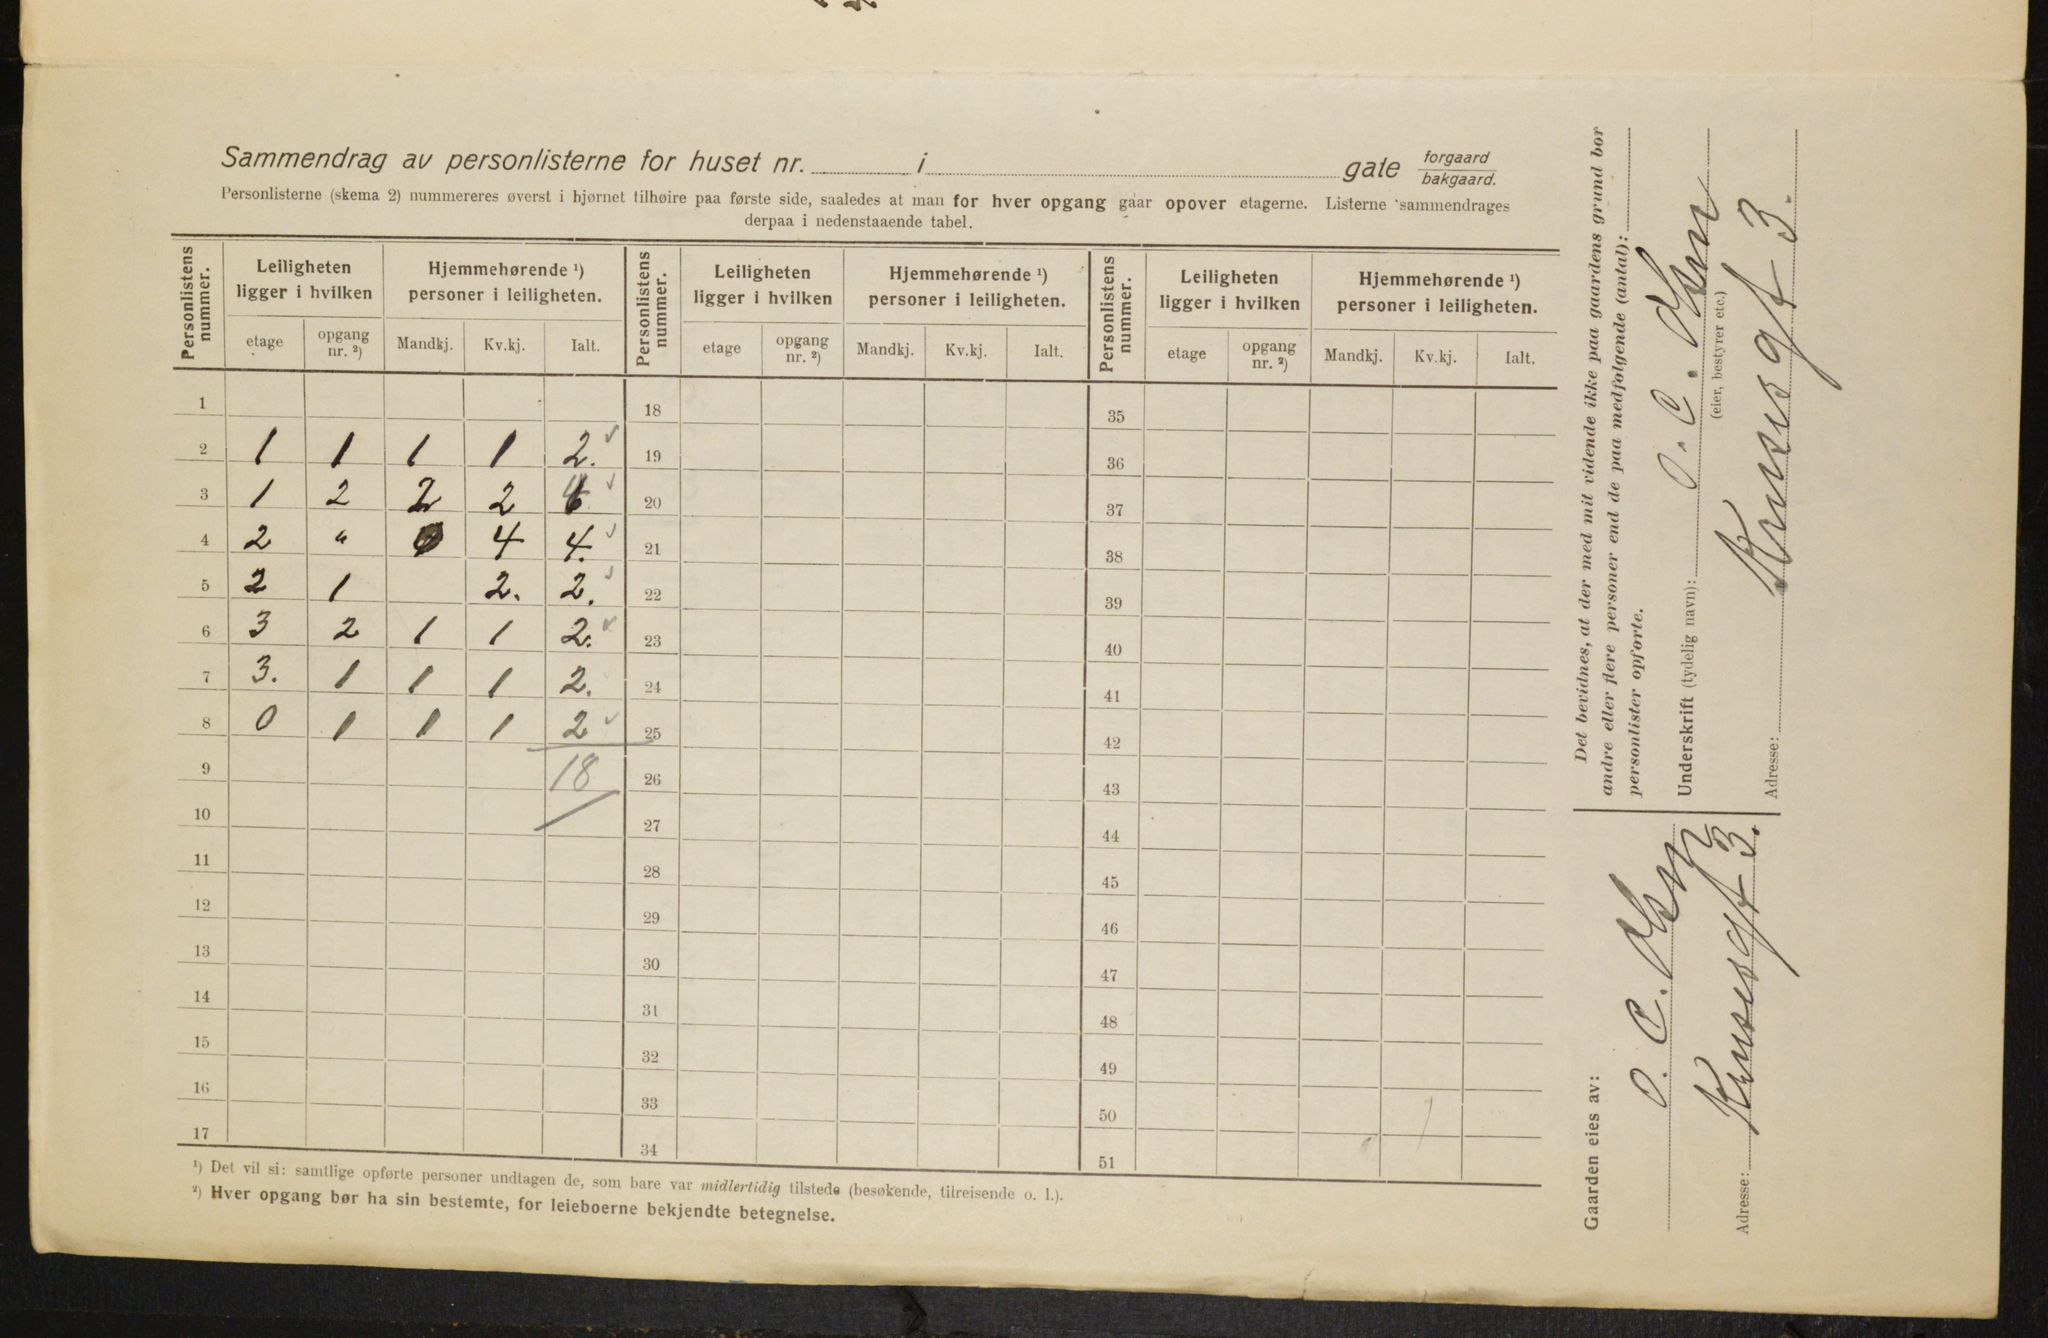 Sammendrag av personlisterne for huset nr. i gate forgaard bakgaard.
Personlisterne (skema 2) nummereres øverst i hjørnet tilhøire paa første side, saaledes at man for hver opgang gaar opover etagerne. Listerne sammendrages
derpaa i nedenstaaende tabel.
Personlistens nummer. Leiligheten ligger i hvilken Hjemmehørende ¹) personer i leiligheten. Personlistens nummer. Leiligheten ligger i hvilken Hjemmehørende ¹) personer i leiligheten. Personlistens nummer. Leiligheten ligger i hvilken Hjemmehørende ¹) personer i leiligheten.
etage opgang nr. ²) Mandkj. Kv.kj. Ialt. etage opgang nr. ²) Mandkj. Kv.kj. Ialt. etage opgang nr. ²) Mandkj. Kv.kj. Ialt.
1 18 35
2 1 1 1 1 2. ✓ 19 36
3 1 2 2 2 4 ✓ 20 37
4 2 " 4 4. ✓ 21 38
5 2 1 2. 2. ✓ 22 39
6 3 2 1 1 2. ✓ 23 40
7 3. 1 1 1 2. 24 41
8 0 1 1 1 2 ✓ 25 42
9 18 26 43
10 27 44
11 28 45
12 29 46
13 30 47
14 31 48
15 32 49
16 33 50
17 34 51
¹) Det vil si: samtlige opførte personer undtagen de, som bare var midlertidig tilstede (besøkende, tilreisende o. l.).
²) Hver opgang bør ha sin bestemte, for leieboerne bekjendte betegnelse.
Det bevidnes, at der med mit vidende ikke paa gaardens grund bor
andre eller flere personer end de paa medfølgende (antal):
personlister opførte.
Underskrift (tydelig navn): O. C. Olsen
(eier, bestyrer etc.)
Adresse: Krusesgt 3.
Gaarden eies av:
O. C. Olsen
Adresse: Krusesgt 3.